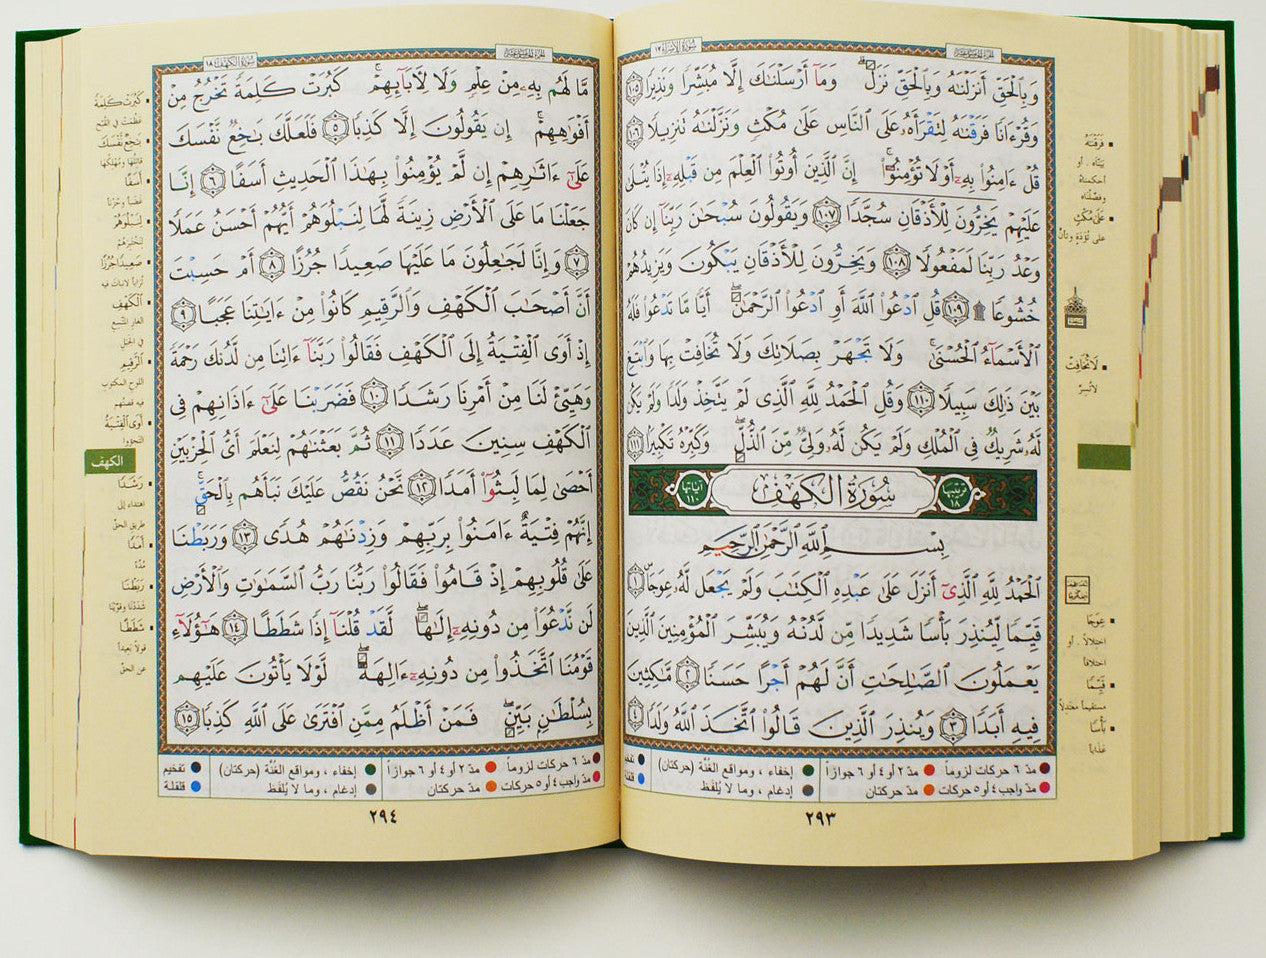 سُورَةُ الإِسْرَاءِ ١٧
وَبِالْحَقِّ أَنزَلْنَٰهُ وَبِالْحَقِّ نَزَلَ ۗ وَمَآ أَرْسَلْنَٰكَ إِلَّا مُبَشِّرًا وَنَذِيرًا ١٠٥
وَقُرْءَانًا فَرَقْنَٰهُ لِتَقْرَأَهُۥ عَلَى النَّاسِ عَلَىٰ مُكْثٍ وَنَزَّلْنَٰهُ تَنزِيلًا ١٠٦
قُلْ ءَامِنُوا۟ بِهِۦٓ أَوْ لَا تُؤْمِنُوٓا۟ ۚ إِنَّ الَّذِينَ أُوتُوا۟ الْعِلْمَ مِن قَبْلِهِۦٓ إِذَا يُتْلَىٰ
عَلَيْهِمْ يَخِرُّونَ لِلْأَذْقَانِ سُجَّدًا ١٠٧ وَيَقُولُونَ سُبْحَٰنَ رَبِّنَآ إِن كَانَ
وَعْدُ رَبِّنَا لَمَفْعُولًا ١٠٨ وَيَخِرُّونَ لِلْأَذْقَانِ يَبْكُونَ وَيَزِيدُهُمْ
خُشُوعًا ۩ ١٠٩ قُلِ ادْعُوا۟ اللَّهَ أَوِ ادْعُوا۟ الرَّحْمَٰنَ ۖ أَيًّا مَّا تَدْعُوا۟ فَلَهُ
الْأَسْمَآءُ الْحُسْنَىٰ ۚ وَلَا تَجْهَرْ بِصَلَاتِكَ وَلَا تُخَافِتْ بِهَا وَابْتَغِ
بَيْنَ ذَٰلِكَ سَبِيلًا ١١٠ وَقُلِ الْحَمْدُ لِلَّهِ الَّذِى لَمْ يَتَّخِذْ وَلَدًا وَلَمْ يَكُن
لَّهُۥ شَرِيكٌ فِى الْمُلْكِ وَلَمْ يَكُن لَّهُۥ وَلِىٌّ مِّنَ الذُّلِّ ۖ وَكَبِّرْهُ تَكْبِيرًا ١١١
ترتيبها ١٨ سُورَةُ الكَهْفِ آياتها ١١٠
بِسْمِ اللَّهِ الرَّحْمَٰنِ الرَّحِيمِ
الْحَمْدُ لِلَّهِ الَّذِىٓ أَنزَلَ عَلَىٰ عَبْدِهِ الْكِتَٰبَ وَلَمْ يَجْعَل لَّهُۥ عِوَجَا ۜ ١
قَيِّمًا لِّيُنذِرَ بَأْسًا شَدِيدًا مِّن لَّدُنْهُ وَيُبَشِّرَ الْمُؤْمِنِينَ الَّذِينَ
يَعْمَلُونَ الصَّٰلِحَٰتِ أَنَّ لَهُمْ أَجْرًا حَسَنًا ٢ مَّٰكِثِينَ
فِيهِ أَبَدًا ٣ وَيُنذِرَ الَّذِينَ قَالُوا۟ اتَّخَذَ اللَّهُ وَلَدًا ٤
فَرَقْنَٰهُ
عَلَىٰ مُكْثٍ
على تُؤَدَةٍ وتأنٍّ
لَا تُخَافِتْ
لا تُسِرّ
عِوَجَا
اختلالاً .. أو
اختلافاً
قَيِّمًا
مستقيماً معتدلاً
بَأْسًا
عَذَاباً
مدّ ٦ حركات لزوماً مدّ ٢ أو ٤ أو ٦ جوازاً إخفاء ، ومواقع الغُنَّة (حركتان)
مدّ واجب ٤ أو ٥ حركات مدّ حركتان إدغام ، وما لا يُلفَظ
٢٩٣
سُورَةُ الكَهْفِ ١٨
مَّا لَهُم بِهِۦ مِنْ عِلْمٍ وَلَا لِءَابَآئِهِمْ ۚ كَبُرَتْ كَلِمَةً تَخْرُجُ مِنْ
أَفْوَٰهِهِمْ ۚ إِن يَقُولُونَ إِلَّا كَذِبًا ٥ فَلَعَلَّكَ بَٰخِعٌ نَّفْسَكَ
عَلَىٰٓ ءَاثَٰرِهِمْ إِن لَّمْ يُؤْمِنُوا۟ بِهَٰذَا الْحَدِيثِ أَسَفًا ٦ إِنَّا
جَعَلْنَا مَا عَلَى الْأَرْضِ زِينَةً لَّهَا لِنَبْلُوَهُمْ أَيُّهُمْ أَحْسَنُ عَمَلًا
٧ وَإِنَّا لَجَٰعِلُونَ مَا عَلَيْهَا صَعِيدًا جُرُزًا ٨ أَمْ حَسِبْتَ
أَنَّ أَصْحَٰبَ الْكَهْفِ وَالرَّقِيمِ كَانُوا۟ مِنْ ءَايَٰتِنَا عَجَبًا ٩
إِذْ أَوَى الْفِتْيَةُ إِلَى الْكَهْفِ فَقَالُوا۟ رَبَّنَآ ءَاتِنَا مِن لَّدُنكَ رَحْمَةً
وَهَيِّئْ لَنَا مِنْ أَمْرِنَا رَشَدًا ١٠ فَضَرَبْنَا عَلَىٰٓ ءَاذَانِهِمْ فِى
الْكَهْفِ سِنِينَ عَدَدًا ١١ ثُمَّ بَعَثْنَٰهُمْ لِنَعْلَمَ أَىُّ الْحِزْبَيْنِ
أَحْصَىٰ لِمَا لَبِثُوٓا۟ أَمَدًا ١٢ نَّحْنُ نَقُصُّ عَلَيْكَ نَبَأَهُم بِالْحَقِّ ۚ
إِنَّهُمْ فِتْيَةٌ ءَامَنُوا۟ بِرَبِّهِمْ وَزِدْنَٰهُمْ هُدًى ١٣ وَرَبَطْنَا
عَلَىٰ قُلُوبِهِمْ إِذْ قَامُوا۟ فَقَالُوا۟ رَبُّنَا رَبُّ السَّمَٰوَٰتِ وَالْأَرْضِ
لَن نَّدْعُوَا۟ مِن دُونِهِۦٓ إِلَٰهًا ۖ لَّقَدْ قُلْنَآ إِذًا شَطَطًا ١٤ هَٰٓؤُلَآءِ
قَوْمُنَا اتَّخَذُوا۟ مِن دُونِهِۦٓ ءَالِهَةً ۖ لَّوْلَا يَأْتُونَ عَلَيْهِم
بِسُلْطَٰنٍۭ بَيِّنٍ ۖ فَمَنْ أَظْلَمُ مِمَّنِ افْتَرَىٰ عَلَى اللَّهِ كَذِبًا ١٥
كَبُرَتْ كَلِمَةً
عَظُمَت في القُبْح
بَٰخِعٌ نَّفْسَكَ
أَسَفًا
لِنَبْلُوَهُمْ
صَعِيدًا جُرُزًا
الْكَهْفِ
الرَّقِيمِ
أَوَى الْفِتْيَةُ
الكهف
رَشَدًا
اهتداء إلى
طريق الحقّ
أَمَدًا
رَبَطْنَا
شَطَطًا
عن الحقّ
مدّ ٦ حركات لزوماً مدّ ٢ أو ٤ أو ٦ جوازاً إخفاء ، ومواقع الغُنَّة (حركتان) تفخيم
مدّ واجب ٤ أو ٥ حركات مدّ حركتان إدغام ، وما لا يُلفَظ قلقلة
٢٩٤